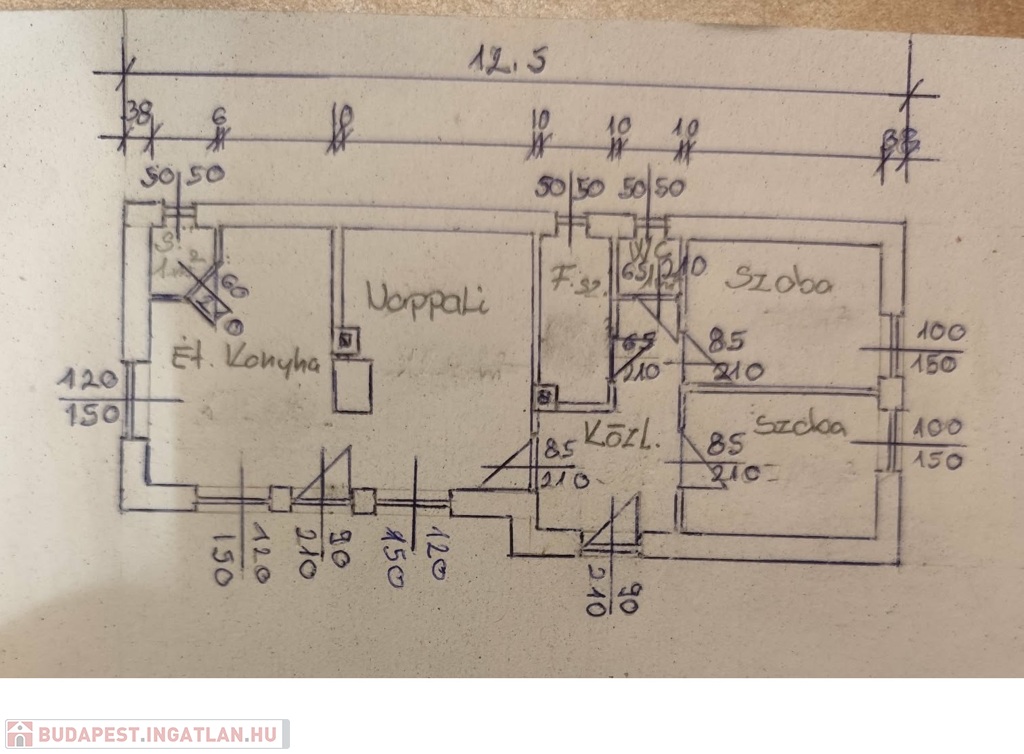 12.5
38 6 10 10 10 10 38
50 50 50 50 50 50
S.
1m²
WC
65 210
F.sz.
Szoba
60
210
Nappali
Ét. Konyha
65
210
85
210
100
150
120
150
Közl.
Szoba
85
210
85
210
100
150
150 120
210 90
150 120
210 90
BUDAPEST.INGATLAN.HU